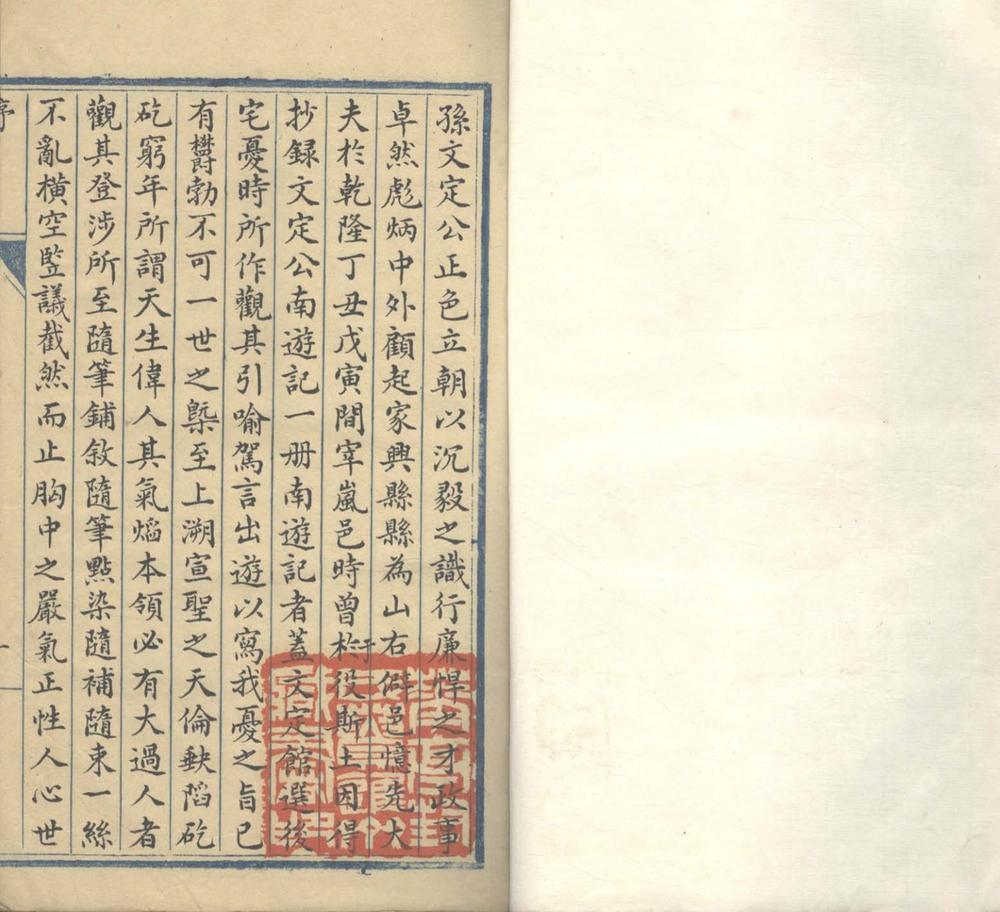 孫文定公正色立朝以沉毅之識行廉悍之才政事
卓然彪炳中外顧起家興縣縣為山右僻邑憶先大
夫於乾隆丁丑戊寅間宰嵐邑時曾於役斯土因得
抄録文定公南遊記一册南遊記者蓋文定館選後
宅憂時所作觀其引喻駕言出遊以寫我憂之旨已
有欝勃不可一世之槩至上溯宣聖之天倫缺陷矻
矻窮年所謂天生偉人其氣焰本領必有大過人者
觀其登涉所至隨筆鋪敘隨筆點染隨補隨束一絲
不亂橫空豎議截然而止胸中之嚴氣正性人心世
序
一